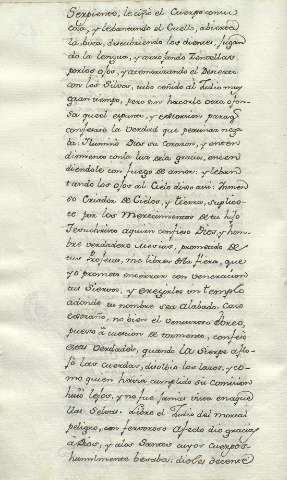 Serpiente, le ciñó el Cuerpo como
cosa, y lebantando el Cuello, abierta
la boca, descubriendo los dientes, jugan
do la lengua, y arrojando centellas
por los ojos, y atemorizando el Desierto
con los silvos, tubo ceñido al Judio muy
gran tiempo, pero sin hacerle otra ofen
sa que el espanto, y
confesase la Verdad que perjuran nega
ba: Iluminó Dios su corazon, y enten
dimiento con la luz de la gracia, encen
diendole con fuego de amor: y leban
tando los ojos al Cielo dixo asi: Inmen
so Criador de Cielos, y tierra, suplico
te por los Merecimientos de tu hijo
Jesuchristo aquien confieso Dios, y hom
bre verdadero Mesias, prometido de
tus Profetas, me libres de la fiera, que
yo prometo enterrar con veneracion
tus Siervos, y eregirles un templo
adonde tu nombre sea alabado. Caso
estraño, no bien el venturoso Ebreo,
puesto à cuestion de tormento, confesó
esta verdades, quando la sierpe aflo
jó las cuerdas, disolbió los lazos, y co
mo quien havia cumplido su comision
huió lejos, y no fue jamas vista en aque
llas Selvas. Libre el Judio del mortal
peligro, con fervoroso afecto dio gracias
a Dios, y alos Santos cuyos cuerpos
humilmente besaba: dioles decente